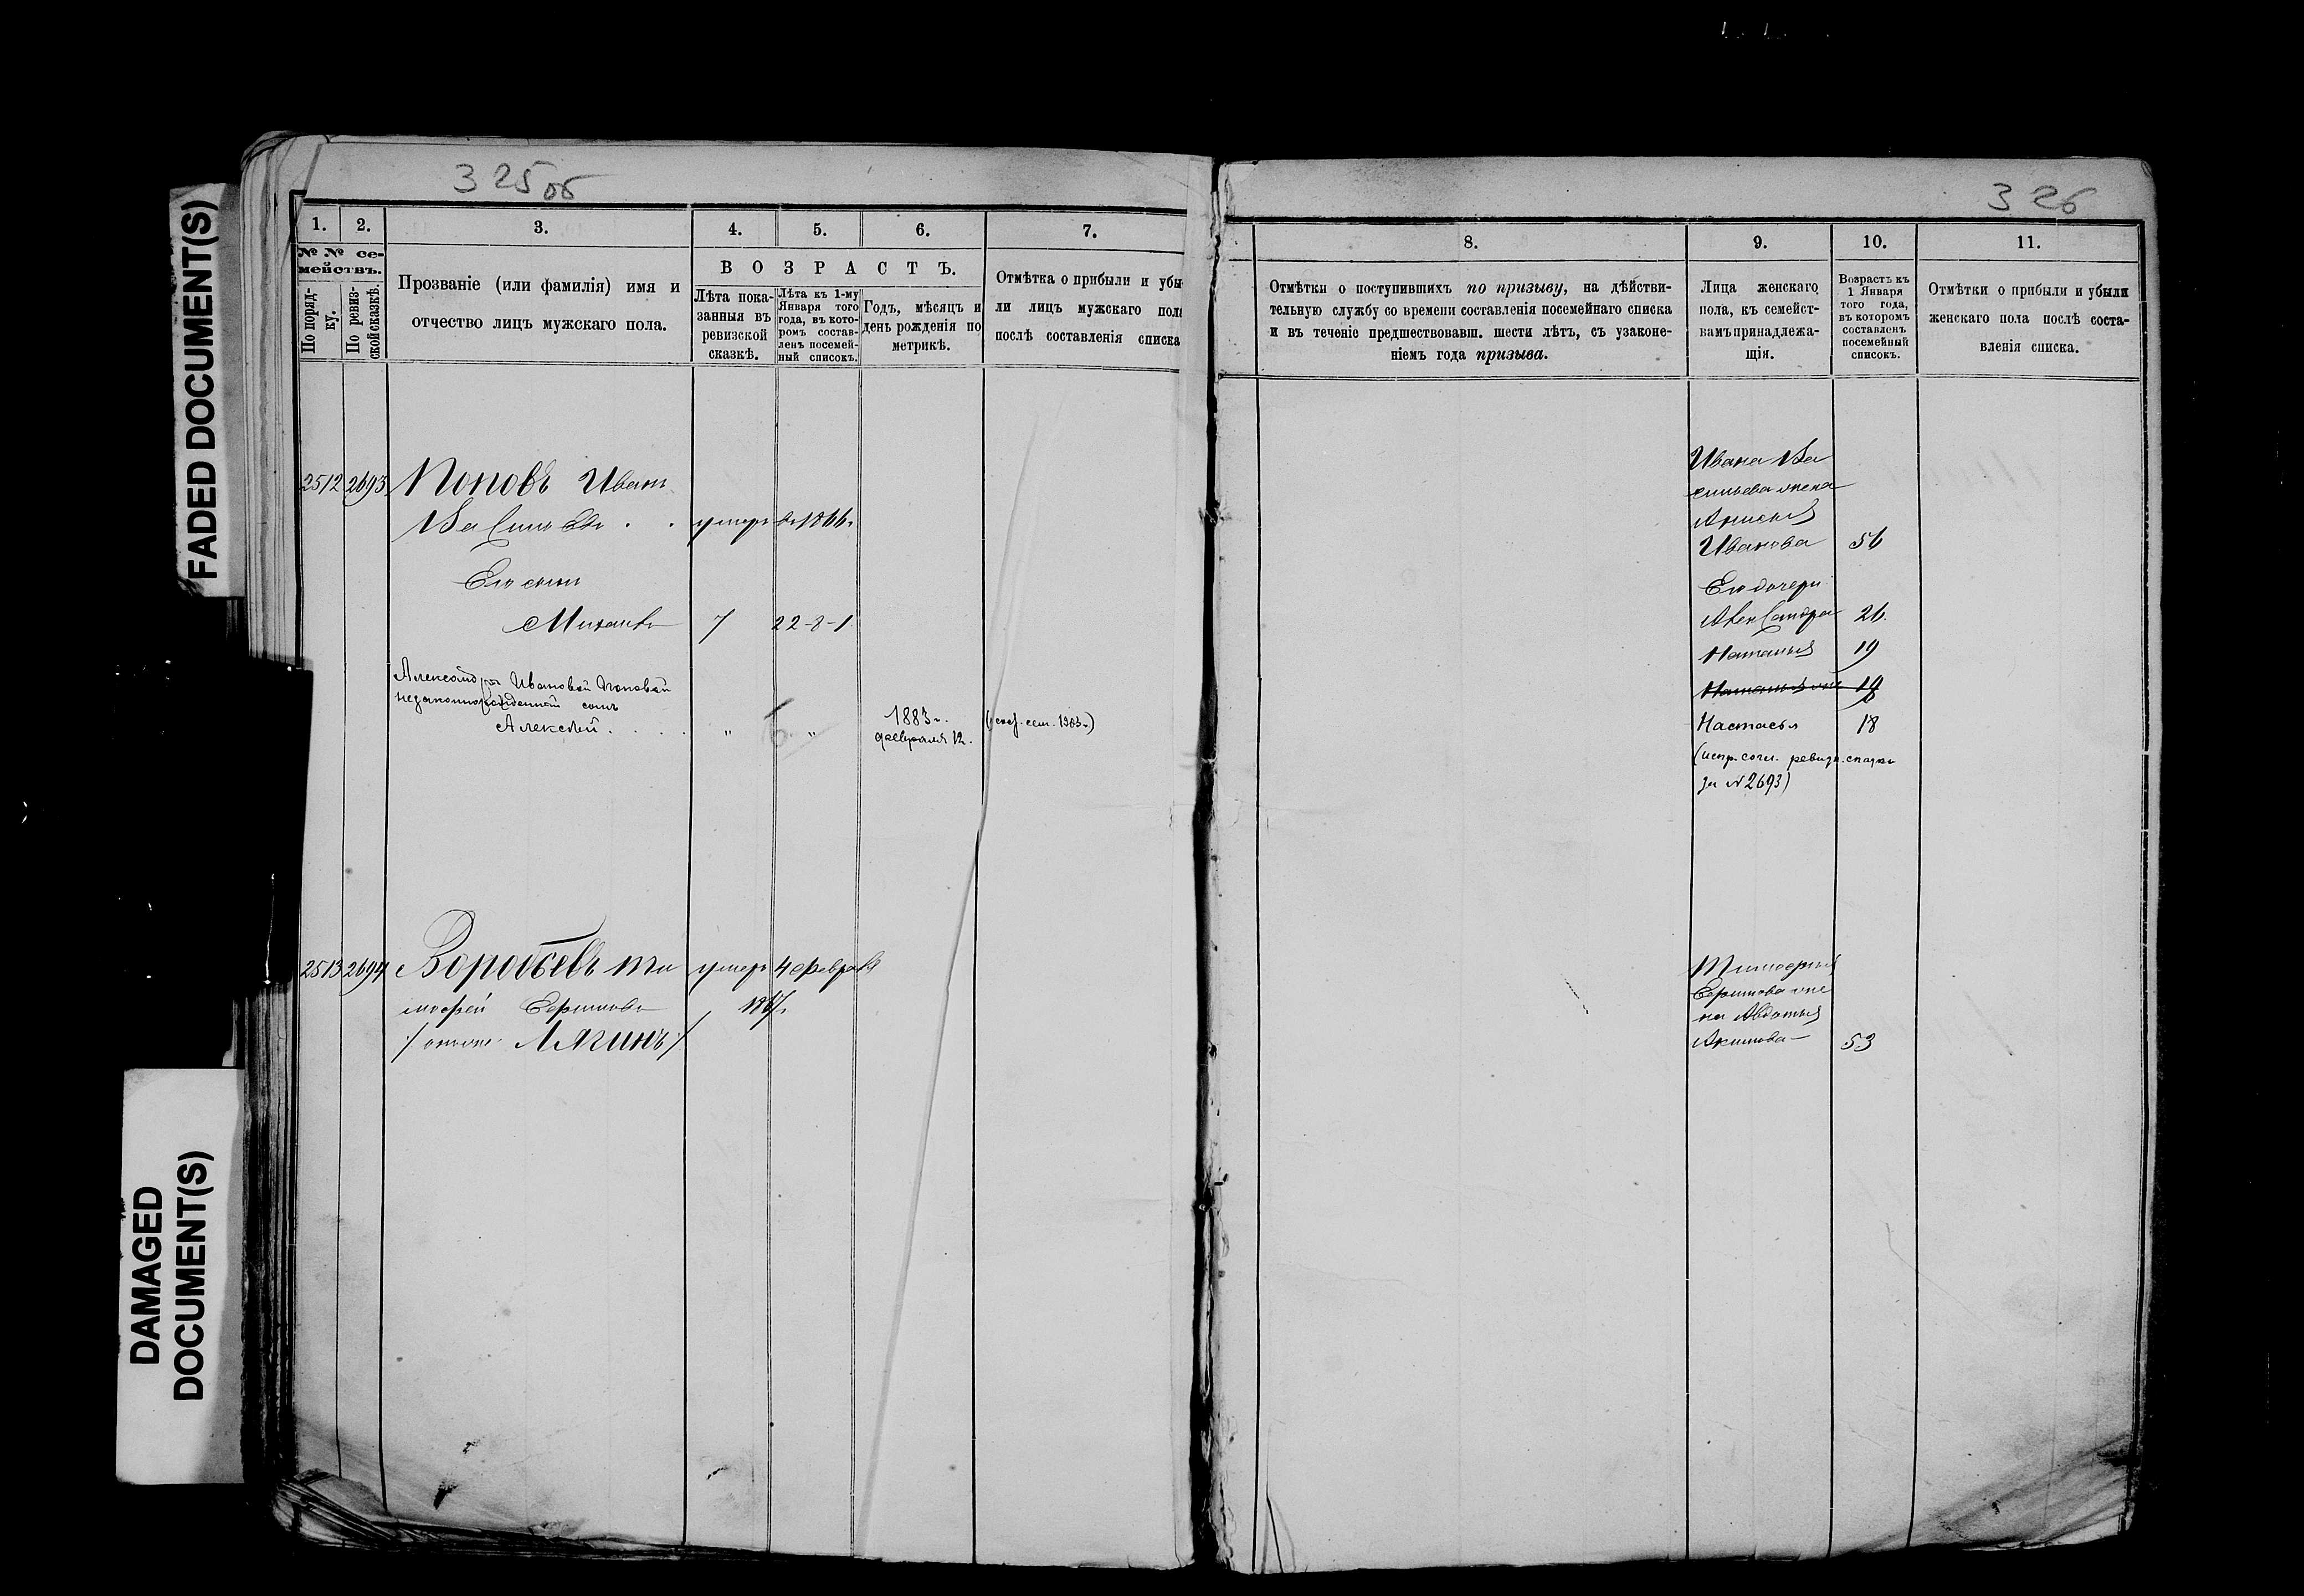 FADED DOCUMENT(S)
DAMAGED
DOCUMENT(S)
325об
1. 2. 3. 4. 5. 6. 7.
№ № се-
мействъ.
По поряд-
ку.
По ревиз-
ской сказкѣ.
Прозваніе (или фамилія) имя и
отчество лицъ мужскаго пола.
ВОЗРАСТЪ.
Лѣта пока-
занныя въ
ревизской
сказкѣ.
Лѣта къ 1-му
Января того
года, въ кото-
ромъ состав-
ленъ посемей-
ный списокъ.
Годъ, мѣсяцъ и
день рожденія по
метрикѣ.
Отмѣтка о прибыли и убы-
ли лицъ мужскаго пола
послѣ составленія списка
2512 2693 Поповъ Иванъ
Васильевъ . . умеръ въ 1866г.
Его сынъ
Михаилъ 7 22-8-1
Александры Ивановой Поповой
незаконнорожденный сынъ
Алексѣй . . . . " 6. " 1883 г.
февраля 12.
2513 2694 Воробьевъ Ти умеръ 4 февраля
мофей Ефимовъ 1867г.
/ онъ же Лягинъ /
326
8. 9. 10. 11.
Отмѣтки о поступившихъ по призыву, на дѣйстви-
тельную службу со времени составленія посемейнаго списка
и въ теченіе предшествовавш. шести лѣтъ, съ узаконе-
ніемъ года призыва.
Лица женскаго
пола, къ семейст-
вамъ принадлежа-
щія.
Возрастъ къ
1 Января
того года,
въ которомъ
составленъ
посемейный
списокъ.
Отмѣтки о прибыли и убыли
женскаго пола послѣ соста-
вленія списка.
Ивана Ва
сильева жена
Анисья
Иванова 56
Его дочери
Александра 26.
Наталья 19
Настасья 18
(испр. согл. ревизс. сказки
за №2693)
Тимофея
Ефимова же
на Авдотья
Акимова 53